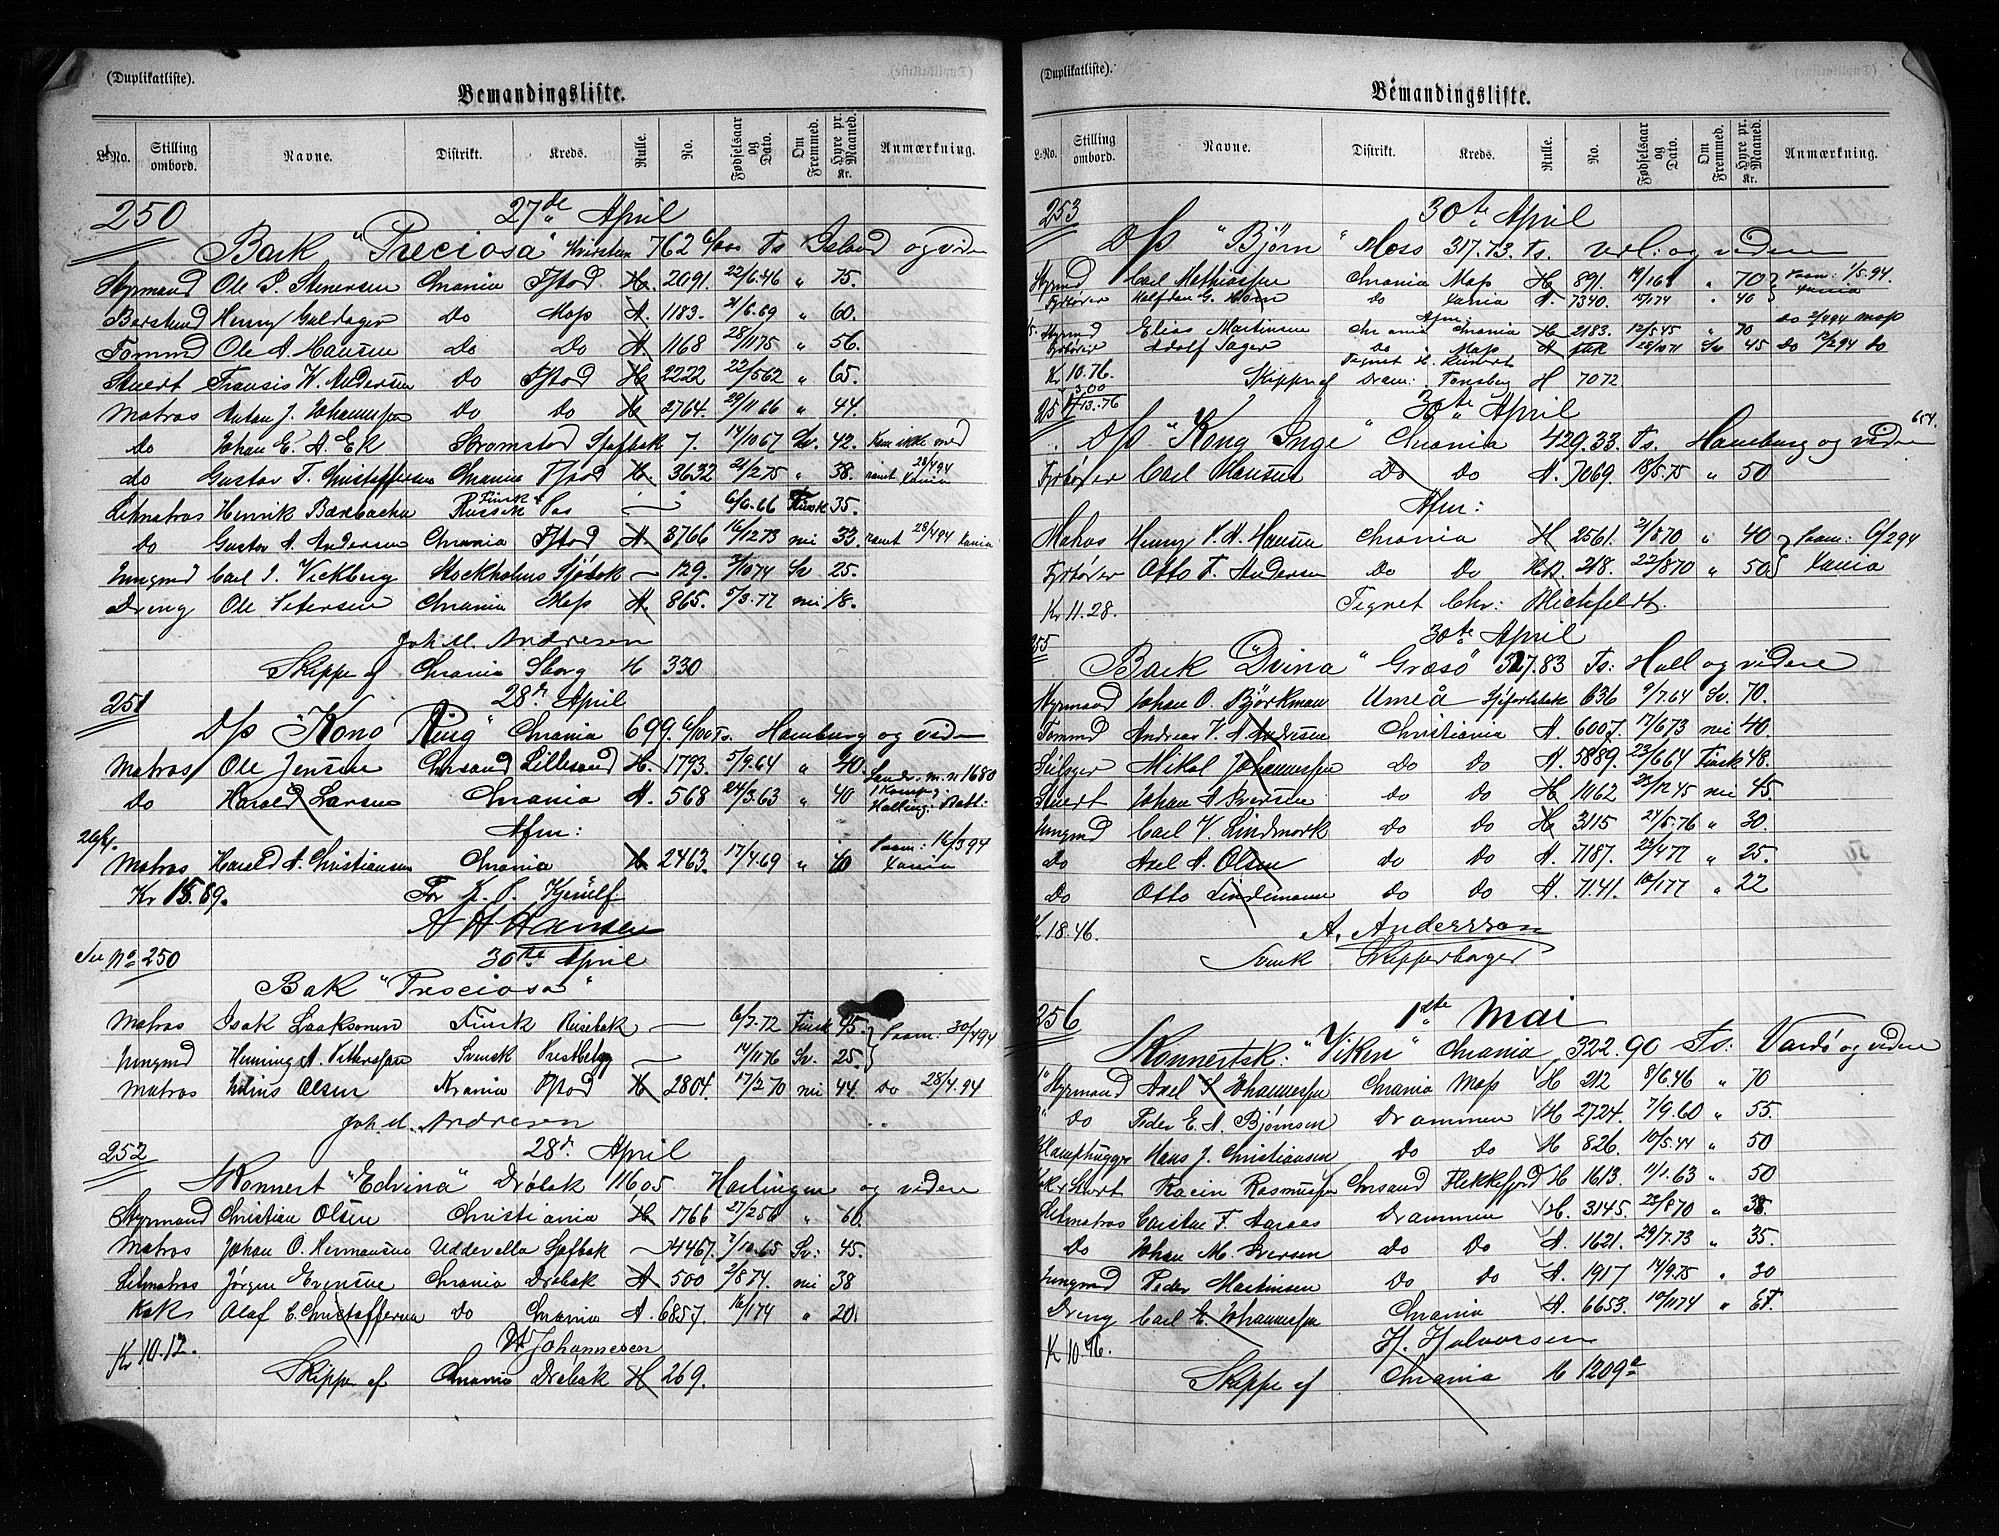 (Duplikatliste).
Bemandingsliste.
L-No. Stilling ombord. Navne. Distrikt. Kreds. Rulle. No. Fødselsaar og Dato. Om Fremmed. Hyre pr. Maaned. Kr. Anmærkning.
250 27de April
Bark "Preciosa" 762 Ts og videre
Styrmand Ole P. Stenersen Chrania Fstad H. 2091. 22/6.46 " 75.
Henry Guldager Do Mosp A. 1183. 21/6.69 " 60.
Tømmd Ole A. Hansen Do Do A 1168 28/1175 " 56.
Stuert Fransis W. Andersen Do Fstad H. 2222 22/562 " 65.
Matros Anton J. Johannesen Do Do H 2764. 29/1166 " 44.
do Johan E. A. Ek Strømstad Sjøfbok 7. 14/1067 Sv. 42. Kan ikke med
do Gustav T. Christoffersen Chrania Fstad H. 3632 21/275 " 38. rømt 28/494 Xania
Letmatros Henrik Finsk Russisk Pas — " 6/6.66 Finsk 35.
Do Gustav A. Andersen Chrania Fstad A. 3766 16/1273 nei 33. rømt 28/494 Xania
Jungmd Carl J. Vickberg Stockholms Sjøbok — 129. 3/1074 Sv 25.
Dreng Ole Petersen Chrania Mosp A. 865. 5/3.77 nei 18.
Joh. M. Andresen
Skippe af Chrania Sborg H 330
251 28de April
D/s "Kong Ring" Chrania 699. 6/100 Ts. Hamburg og videre
Matros Ole Jensen Chrsand Lillesand H. 1793. 5/9.64 " 40.
do Harald Larsen Chrania A. 568 24/3.63 " 40
Afm:
Matros Harald A. Christiansen Chrania H 2463. 17/4.69 " 40 Paam: 16/394 Xania
Kr 15.89. For K. T. Kjerulf
A H Hansen
Se No 250 30te April
Bak "Preciosa"
Matros Isak Laaksonen Finsk Reisebok — 6/7.72 Finsk 45. Paam: 30/494
Jungmd Henning A. Pettersson Svensk Prestbetyg — 14/1176 Sv. 25.
Matros Julius Olsen Krania Fstad H 2804. 17/270 nei 44 Do 28/4.94
Joh. M. Andresen
252 28de April
Skonnert "Edvina" Drøbak 116.05 Harlingen og videre
Styrmand Christian Olsen Christiania H 1766 27/256 " 60.
Matros Johan O. Hermansen Uddevalla Sjøfbok — 4467. 7/10.65 Sv: 45.
Letmatros Jørgen Evensen Chrania Drøbak A 500 2/8 74. nei 38
Kok Olaf E. Christoffersen Do Chrania A. 6857. 16/174 " 20.
Kr 10.12. Johannesen
Skippe af Chrania Drøbak H 269.
(Duplikatliste).
Bemandingsliste.
L-No. Stilling ombord. Navne. Distrikt. Kreds. Rulle. No. Fødselsaar og Dato. Om Fremmed. Hyre pr. Maaned. Kr. Anmærkning.
253 30te April
D/s "Bjørn" Moss 317.73. Ts. og videre
Styrmd Carl Mathiassen Chrania Mosp H 891. " 70 Paam: 1/5.94
Fyrbøter Halfdan G. Horn do Xania A. 7340. 15/174 " 40 Xania
Afm:
Styrmd Elias Martinsen Chrania Chrania H 2183. 12/545 " 70 Do 2/294 Mosp
Fyrbøter Adolf Sager Do Mosp A 28/1071 Sv 45 Do 12/294 do
Kr 10.76. Tegnet
3.00 Skippe af Dram: Tønsberg H 7072
13.76 30te April
D/s "Kong Inge" Chrania 429.33. Ts. Hamburg og videre
Fyrbøter Carl Hansen Do Do A. 7069. 18/5.75 " 50
Afm:
Matros Henry P. A. Hansen Chrania H 2561. 21/870 " 40 Paam: 6/294
Fyrbøter Otto F. Andersen Do Do 218. 22/870 " 50 Xania
Kr 11.28. Tegnet Chr: Hichfeldt.
30te April
Bark "Dvina" Græsø 327.83 Ts: Hull og videre
Styrmand Johan O. Bjørkman Umeå Sjøfartsbok 636 9/7.64 Sv. 70.
Tømmd Andreas V. A. Andersen Christiania A. 6007. 17/673 nei 40.
Seilsyer Mikal Johannessen do Do A. 5889. 23/664 Finsk 48.
Stuert Johan A Iversen do Do H 1062 21/12 45 nei 45.
Jungmd Carl V. Lindmark do Do H 3115 24/5.76 " 30.
do Axel A. Olsen do Do A. 7187. 23/477 " 25.
do Otto Lindemann do Do A. 7141. 10/177 " 22
Kr 18.46. A. Andersson
Svensk Skipperborger
256 1ste Mai
Skonnertsk: "Viken" Chrania 322.90 Ts: Vardø og videre
1' Styrmand Axel S Johannessen Chrania Mosp H 212 8/6.46 " 70
Do Peder E. A. Bjørnsen Drammen H 2724. 7/9.60 " 55.
Hans J. Christiansen Do Do H 826. 10/5.44 " 50
Kok & Stuert Karin Rasmussen Chrsand Flekkefjord H 1613. 11/1.63 " 50
Letmatros Carsten F. Aaraas Drammen H. 3145. 23/870 " 38.
Do Johan M. Iversen Do Do A. 1621. 29/7.73 " 35.
Jungmd Peder Martinsen Do Do A. 1917 14/9.75 " 30
Dreng Carl E. Johannessen Chrania A. 6653. 10/1174 "
K 10.96. H. Halvorsen
Skippe af Chrania H 1209